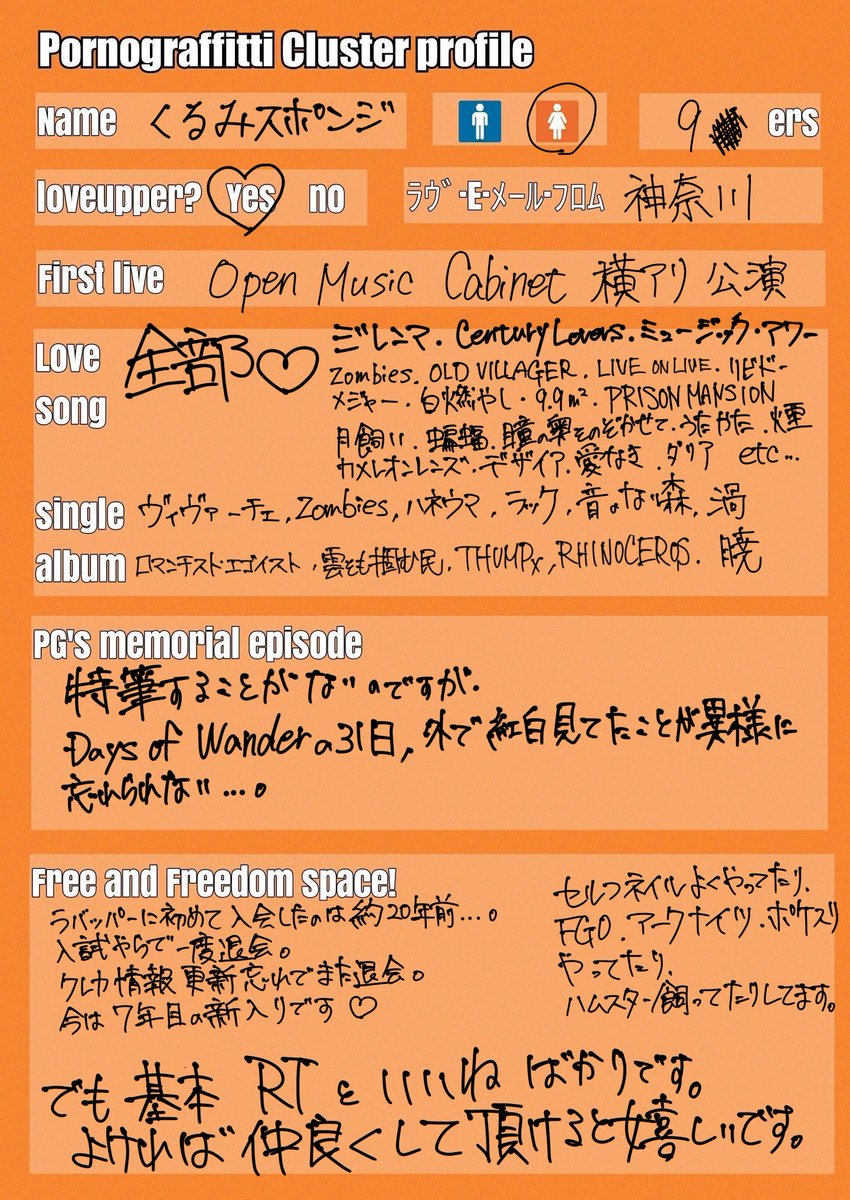 Pornograffitti Cluster profile
Name くるみスポンジ 9 ers
loveupper? Yes no ラヴ・E・メール・フロム 神奈川
First live Open Music Cabinet 横アリ公演
Love song 全部♡
ジレンマ. Century Lovers. ミュージック・アワー
Zombies. OLD VILLAGER. LIVE ON LIVE. リビドー
メジャー. 白燃やし. 9.9㎡. PRISON MANSION
月飼い. 蝙蝠. 瞳の奥をのぞかせて. うたかた. 煙
カメレオンレンズ. デザイア. 愛なき. ダリア etc...
single ヴィヴァーチェ, Zombies, ハネウマ, ラック, 音のない森, 渦
album ロマンチスト・エゴイスト, 雲をも掴む民, THUMPx, RHINOCEROS. 暁
PG's memorial episode
特筆することがないのですが.
Days of Wanderの31日, 外で紅白見てたことが異様に
忘れられない...。
Free and Freedom space!
ラバッパーに初めて入会したのは約20年前...。
入試やらで一度退会。
クレカ情報更新忘れでまた退会。
今は7年目の新入りです♡
セルフネイルよくやってたり.
FGO. アークナイツ. ポケスリ
やってたり.
ハムスター飼ってたりしてます。
でも基本RTといいねばかりです。
よければ仲良くして頂けると嬉しいです。